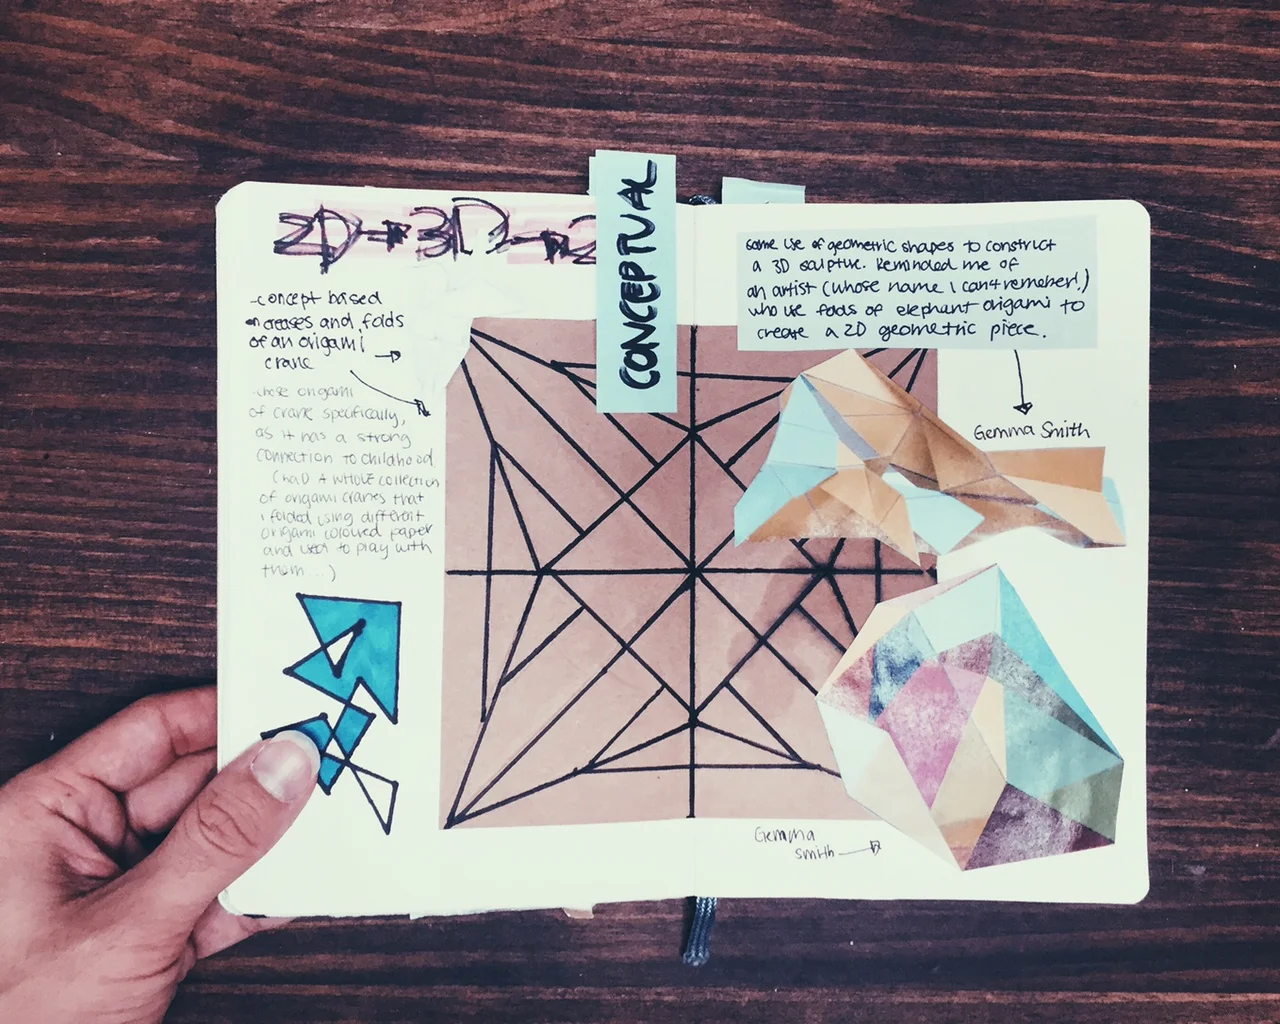 2D → 3D → 2
CONCEPTUAL
-concept based
on creases and folds
of an origami
crane
-chose origami
of crane specifically,
as it has a strong
connection to childhood
(had A WHOLE collection
of origami cranes that
i folded using different
origami coloured paper
and used to play with
them...)
some use of geometric shapes to construct
a 3D sculptive. Reminded me of
an artist (whose name I can't remember!)
who use folds of elephant origami to
create a 2D geometric piece.
Gemma Smith
Gemma
smith